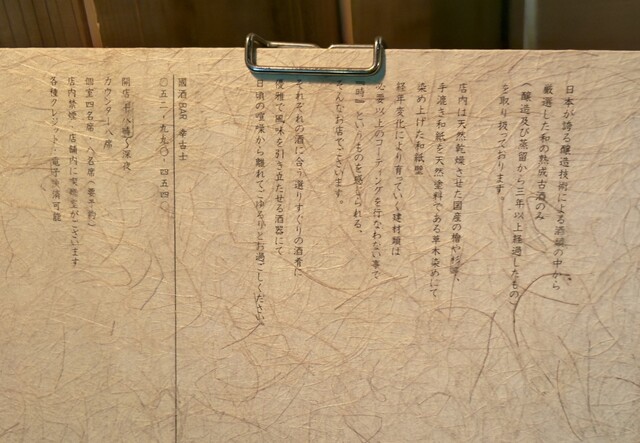 日本が誇る醸造技術による酒類の中から、
厳選した和の熟成古酒のみ
（醸造及び蒸留から三年以上経過したもの）
を取り扱っております。
店内は天然乾燥させた国産の檜や杉等、
手漉き和紙を天然塗料である草木染めにて
染め上げた和紙壁
経年変化により育っていく建材類は
必要以上のコーティングを行なわない事で
『時』というものを感じられる、
そんなお店でございます。
それぞれの酒に合う選りすぐりの酒肴に
優雅で風味を引き立たせる酒器にて
日頃の喧噪から離れてごゆるりとお過ごしください。
國酒BAR 幸古士
〇五二・九九〇・四五四
開店 十八時〜深夜
カウンター八席
個室四名席 八名席（要予約）
店内禁煙・店舗内に喫煙室がございます
各種クレジット・電子決済可能